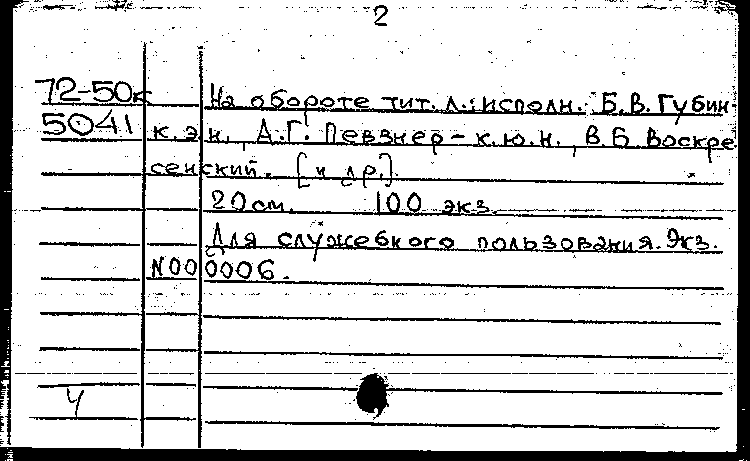 2
72-50к На обороте тит. л.: исполн. Б.В. Губин-
5041 к.э.н., А.Г. Певзнер - к.ю.н., В.Б. Воскре
сенский. [и др.].
20 см. 100 экз.
Для служебного пользования. Экз.
N000006.
Ч